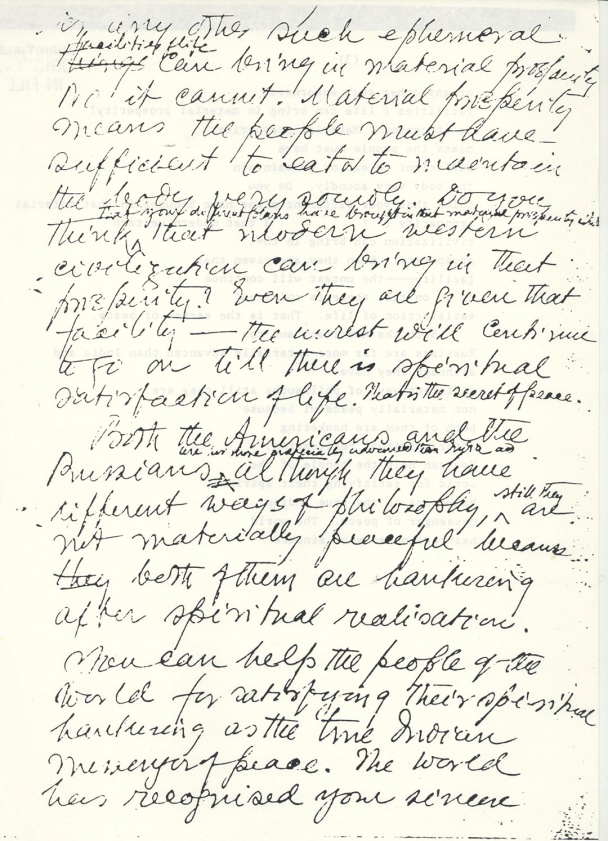 in any other such ephemeral
facilities of life
things can bring in material prosperity
No it cannot. Material prosperity
means the people must have
sufficient to eat & to maintain
the body very soundly. Do you
that your different plans have brought in that material prosperity
think that modern western
civilization can bring in that
prosperity? Even they are given that
facility — the unrest will continue
to go on till there is spiritual
satisfaction of life. That is the secret of peace.
Both the Americans and the
are far more materially advanced than India and
Russians although they have
different ways of philosophy, still they are
not materially peaceful because
they both of them are hankering
after spiritual realisation.
You can help the people of the
world for satisfying their spiritual
hankering as the true Indian
messenger of peace. The world
has recognised your sincere